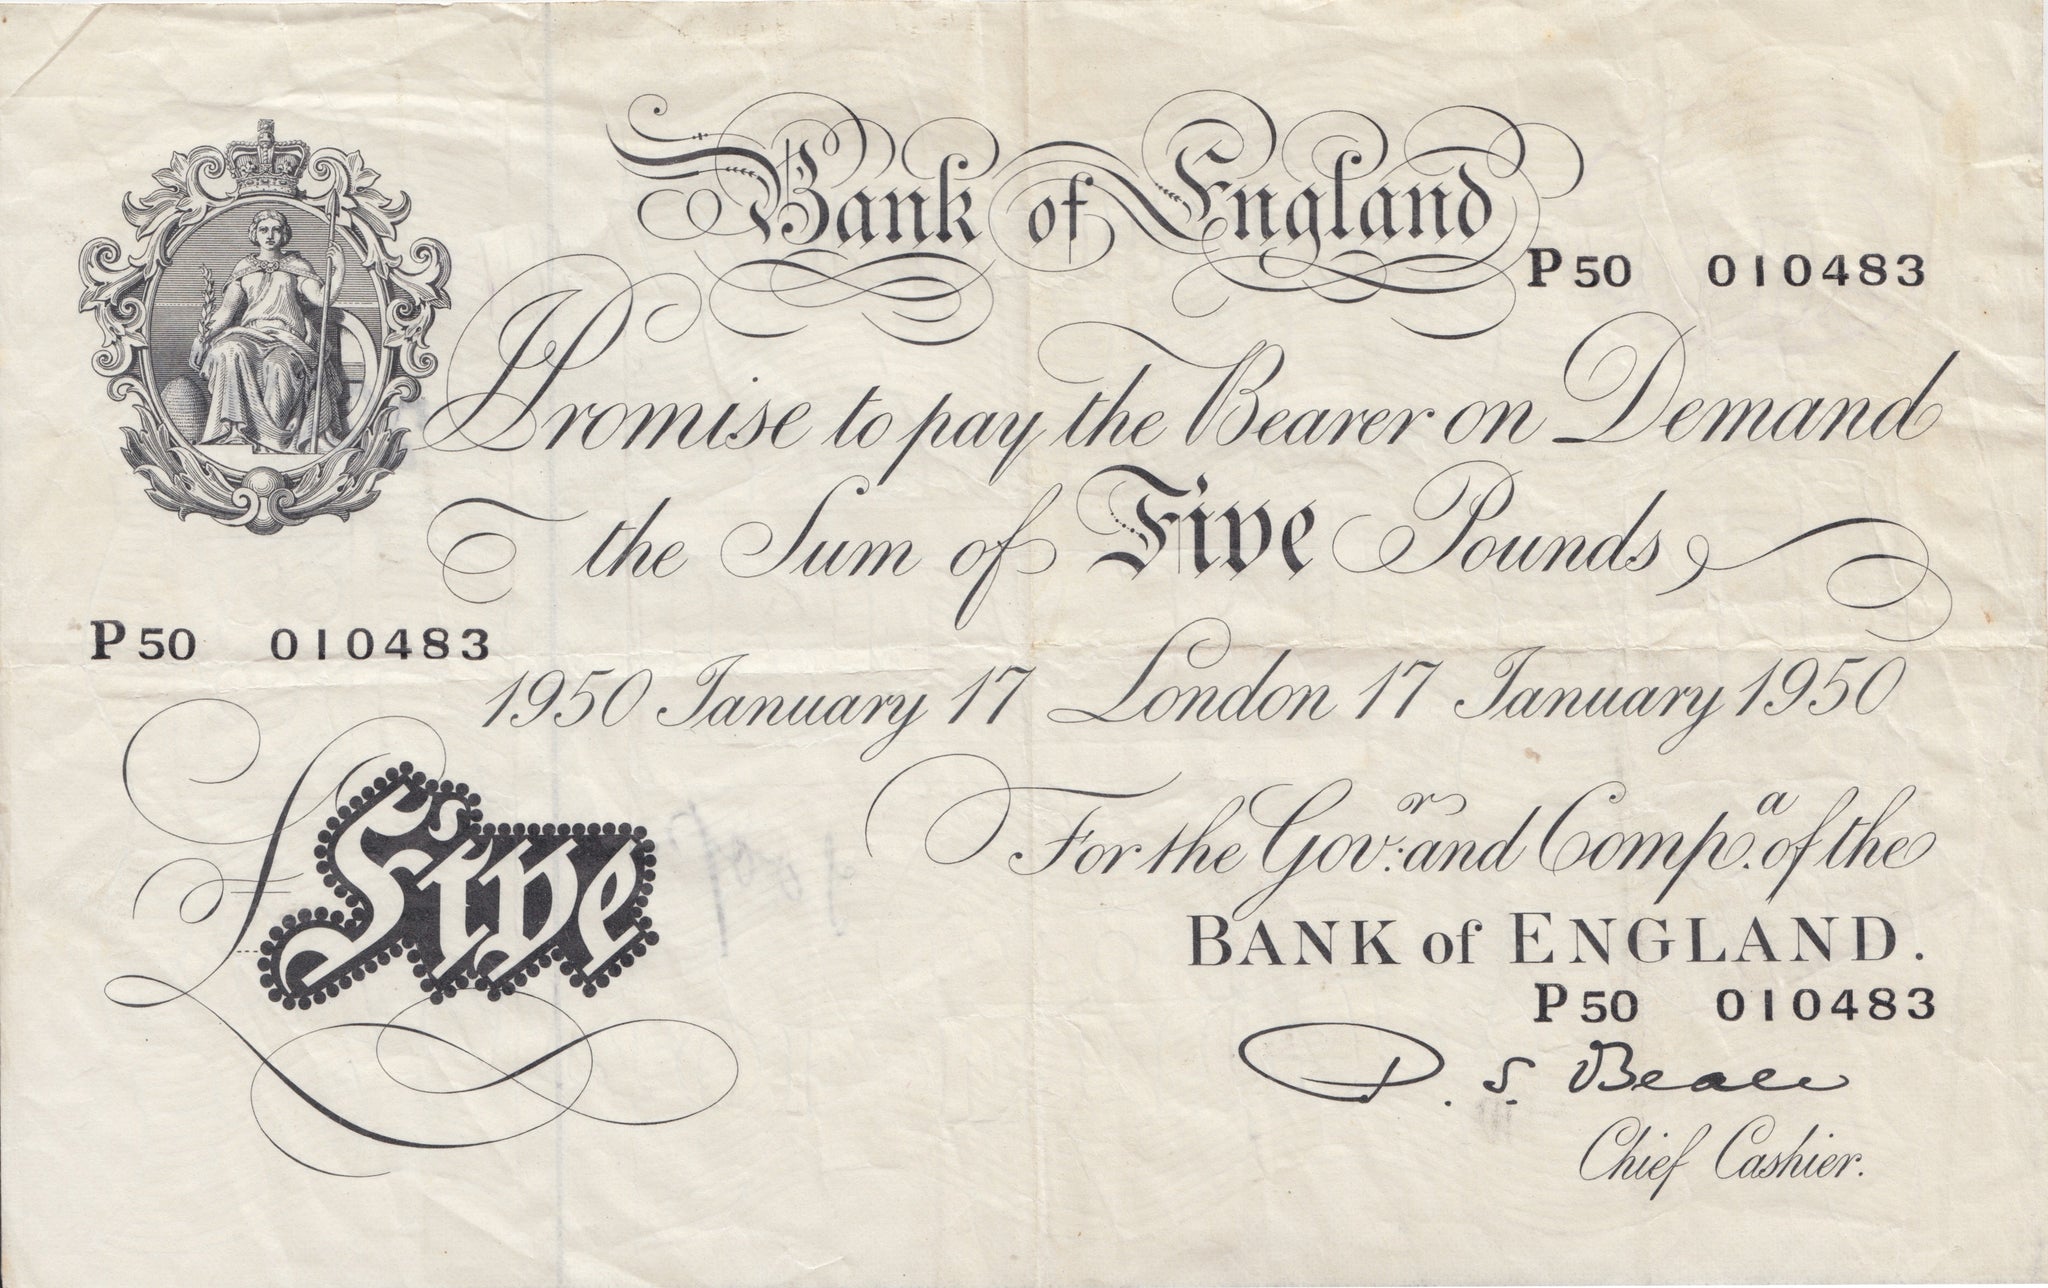 Bank of England
P 50 010483
I Promise to pay the Bearer on Demand
the Sum of Five Pounds
P 50 010483
1950 January 17 London 17 January 1950
£ Five
For the Gov.r and Comp.a of the
BANK of ENGLAND.
P 50 010483
P. S. Beale
Chief Cashier.